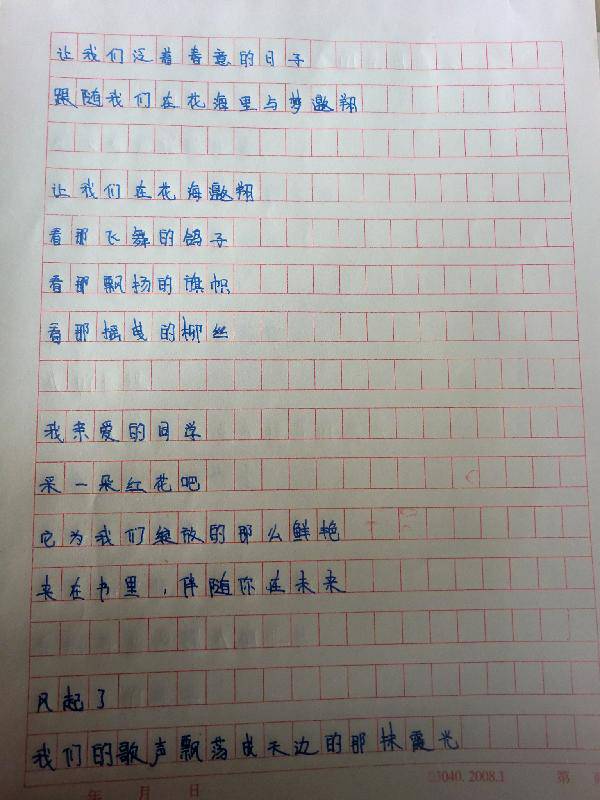 让我们泛着春意的日子
跟随我们在花海里与梦遨翔
让我们在花海遨翔
看那飞舞的鸽子
看那飘扬的旗帜
看那摇曳的柳丝
我亲爱的同学
采一朵红花吧
它为我们绽放的那么鲜艳
夹在书里，伴随你在未来
风起了
我们的歌声飘荡成天边的那抹霞光
3040.2008.1
年 月 日 第